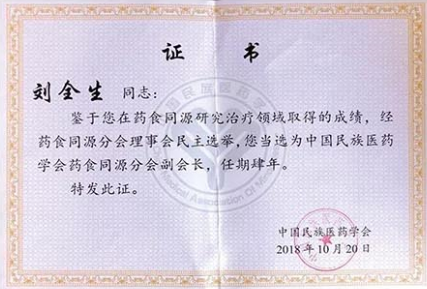 证 书
刘全生 同志：
鉴于您在药食同源研究治疗领域取得的成绩，经
药食同源分会理事会民主选举，您当选为中国民族医药
学会药食同源分会副会长，任期肆年。
特发此证。
中国民族医药学会
2018年10月20日